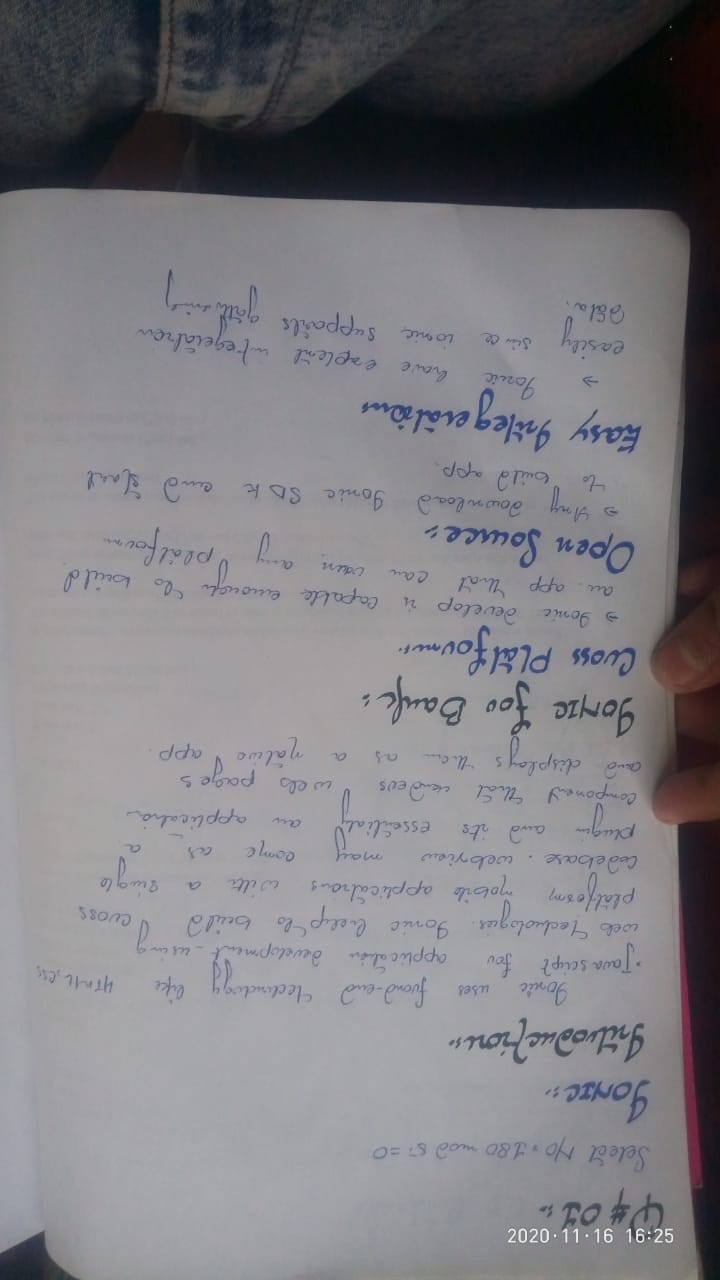 Q # 01:-
Select No = 180 mod 5 = 0
IONIC:-
Introduction:-
Ionic uses frond-end technology like HTML, CSS
Javascript for application development - using
web technologies. Ionic help to build cross
platform mobile applications with a single
codebase. webview may come as a
plugin and its essentialy an application
component that renders web pages
and displays them as a native app.
IONIC for Bank:-
Cross Platform:-
⇒ Ionic develop is capable enough to build
an app that can any platform
Open Source:-
⇒ Any download Ionic SDK and start
to build app.
Easy Integeration:-
⇒ Ionic have integeration
easily since ionic supports
data.
2020·11·16 16:25